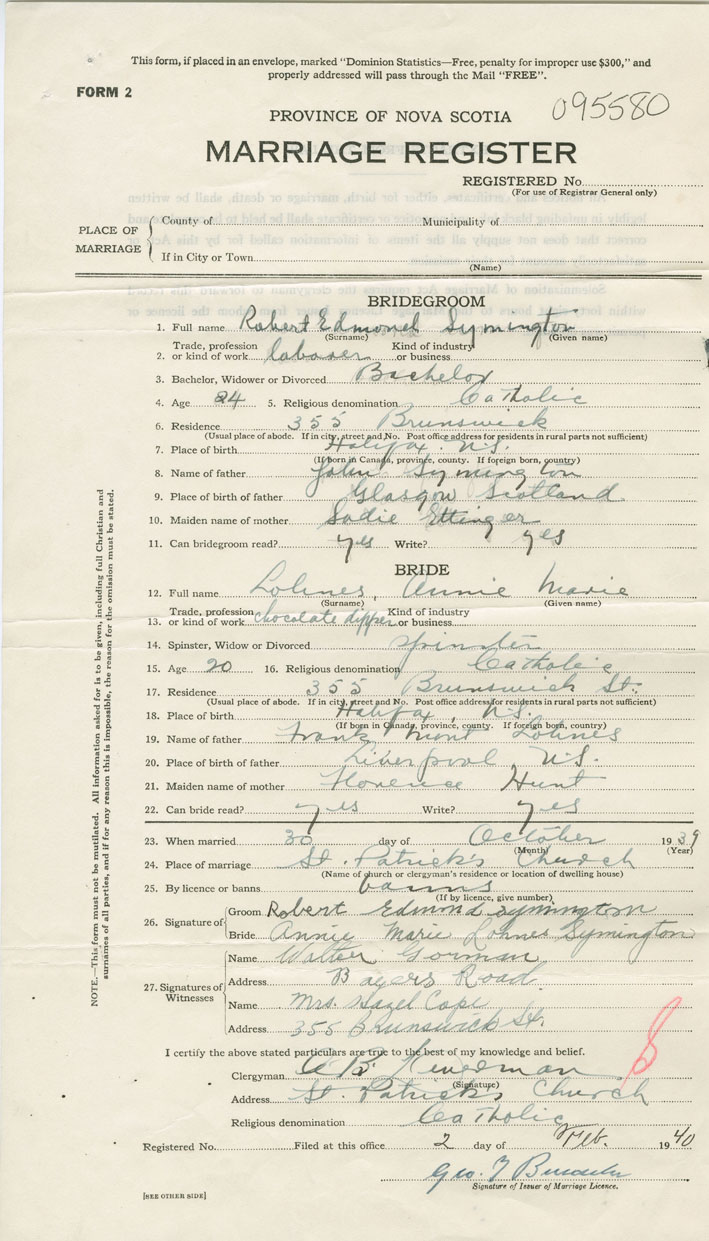 This form, if placed in an envelope, marked "Dominion Statistics—Free, penalty for improper use $300," and
properly addressed will pass through the Mail "FREE".
FORM 2
095580
PROVINCE OF NOVA SCOTIA
MARRIAGE REGISTER
REGISTERED No.
(For use of Registrar General only)
PLACE OF MARRIAGE
County of Municipality of
If in City or Town
(Name)
BRIDEGROOM
1. Full name Robert Edmond Symington
(Surname) (Given name)
2. Trade, profession or kind of work labourer Kind of industry or business
3. Bachelor, Widower or Divorced Bachelor
4. Age 24 5. Religious denomination Catholic
6. Residence 355 Brunswick
(Usual place of abode. If in city, street and No. Post office address for residents in rural parts not sufficient)
7. Place of birth Halifax N.S.
(If born in Canada, province, county. If foreign born, country)
8. Name of father John Symington
9. Place of birth of father Glasgow Scotland
10. Maiden name of mother Sadie Ettinger
11. Can bridegroom read? yes Write? yes
BRIDE
12. Full name Lohnes, Annie Marie
(Surname) (Given name)
13. Trade, profession or kind of work chocolate dipper Kind of industry or business
14. Spinster, Widow or Divorced spinster
15. Age 20 16. Religious denomination Catholic
17. Residence 355 Brunswick St.
(Usual place of abode. If in city, street and No. Post office address for residents in rural parts not sufficient)
18. Place of birth Halifax, N.S.
(If born in Canada, province, county. If foreign born, country)
19. Name of father Frank Lohnes
20. Place of birth of father Liverpool N.S.
21. Maiden name of mother Florence Hunt
22. Can bride read? yes Write? yes
23. When married 30 day of October 1939
(Month) (Year)
24. Place of marriage St. Patrick's Church
(Name of church or clergyman's residence or location of dwelling house)
25. By licence or banns banns
(If by licence, give number)
26. Signature of
Groom Robert Edmond Symington
Bride Annie Marie Lohnes Symington
27. Signatures of Witnesses
Name Walter Gorman
Address Bayers Road
Name Mrs. Hazel Cope
Address 355 Brunswick St.
I certify the above stated particulars are true to the best of my knowledge and belief.
Clergyman
(Signature)
Address St. Patrick's Church
Religious denomination Catholic
Registered No. Filed at this office 2 day of Feb. 1940
Geo. F
Signature of Issuer of Marriage Licence.
[SEE OTHER SIDE]
NOTE.—This form must not be mutilated. All information asked for is to be given, including full Christian and
surnames of all parties, and if for any reason this is impossible, the reason for the omission must be stated.